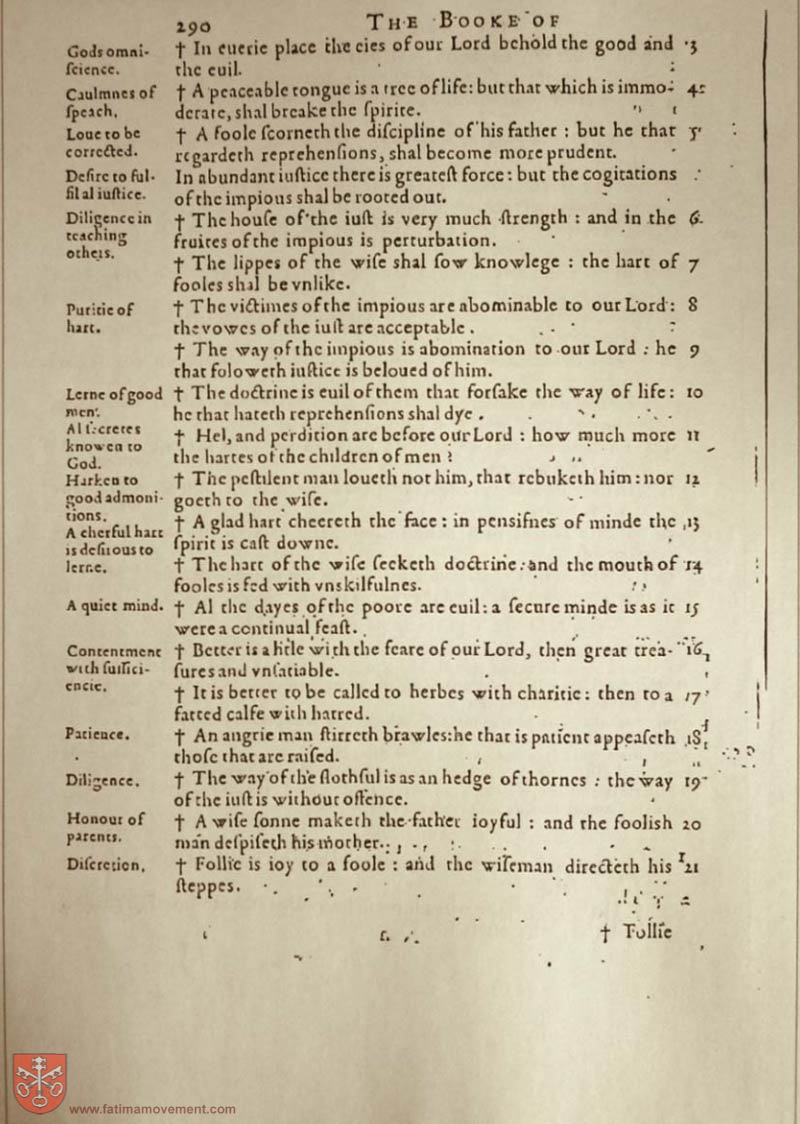 290 THE BOOKE OF
Gods omni-
ſcience.
† In euerie place the eies of our Lord behold the good and 3
the euil.
Caulmnes of
ſpeach.
† A peaceable tongue is a tree of life: but that which is immo- 4
derate, shal breake the ſpirite.
Loue to be
corrected.
† A foole ſcorneth the diſcipline of his father : but he that 5
regardeth reprehenſions, shal become more prudent.
Deſire to ful-
fil al iuſtice.
In abundant iuſtice there is greateſt force: but the cogitations
of the impious shal be rooted out.
Diligence in
teaching
others.
† The houſe of the iuſt is very much ſtrength : and in the 6
fruites of the impious is perturbation.
† The lippes of the wiſe shal ſow knowlege : the hart of 7
fooles shal be vnlike.
Puritie of
hart.
† The victimes of the impious are abominable to our Lord: 8
the vowes of the iuſt are acceptable.
† The way of the impious is abomination to our Lord : he 9
that foloweth iuſtice is beloued of him.
Lerne of good
men.
† The doctrine is euil of them that forſake the way of life: 10
he that hateth reprehenſions shal dye.
Al ſecretes
knowen to
God.
† Hel, and perdition are before our Lord : how much more 11
the hartes of the children of men ?
Harken to
good admoni-
tions.
† The peſtilent man loueth not him, that rebuketh him: nor 12
goeth to the wiſe.
A cherful hart
is deſirous to
lerne.
† A glad hart cheereth the face: in penſifnes of minde the 13
ſpirit is caſt downe.
† The hart of the wiſe ſeeketh doctrine: and the mouth of 14
fooles is fed with vnskilfulnes.
A quiet mind.
† Al the dayes of the poore are euil: a ſecure minde is as it 15
were a continual feaſt.
Contentment
with ſuffici-
encie.
† Better is a litle with the feare of our Lord, then great trea- 16
ſures and vnſatiable.
† It is better to be called to herbes with charitie: then to a 17
fatted calfe with hatred.
Patience.
† An angrie man ſtirreth brawles: he that is patient appeaſeth 18
thoſe that are raiſed.
Diligence.
† The way of the ſlothful is as an hedge of thornes : the way 19
of the iuſt is without offence.
Honour of
parents.
† A wiſe ſonne maketh the father ioyful : and the foolish 20
man deſpiſeth his mother.
Diſcretion.
† Follie is ioy to a foole : and the wiſeman directeth his 21
ſteppes.
† Follie
www.fatimamovement.com